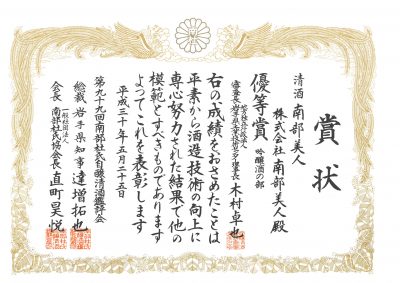 賞状
清酒 南部美人
株式会社 南部美人 殿
優等賞 吟醸酒の部
木村卓也
右の成績をおさめたことは
平素から酒造技術の向上に
専心努力された結果で他の
模範とすべきものであります
よってこれを表彰します
平成三十年五月二十五日
第九十九回南部杜氏自醸清酒鑑評会
総裁 岩手県知事 達増拓也
一般社団法人
会長 南部杜氏協会会長 直町昊悦